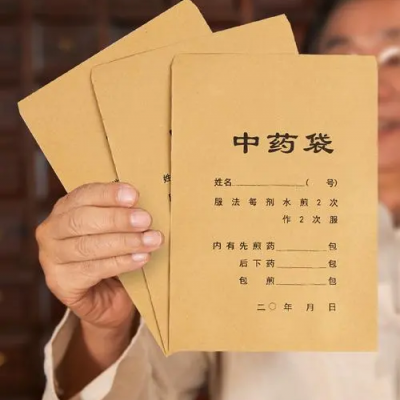 中药袋
姓名____________( 号)
服法每剂水煎2次
作2次服
内有先煎药_________包
后下药_________包
包煎_________包
二〇 年 月 日